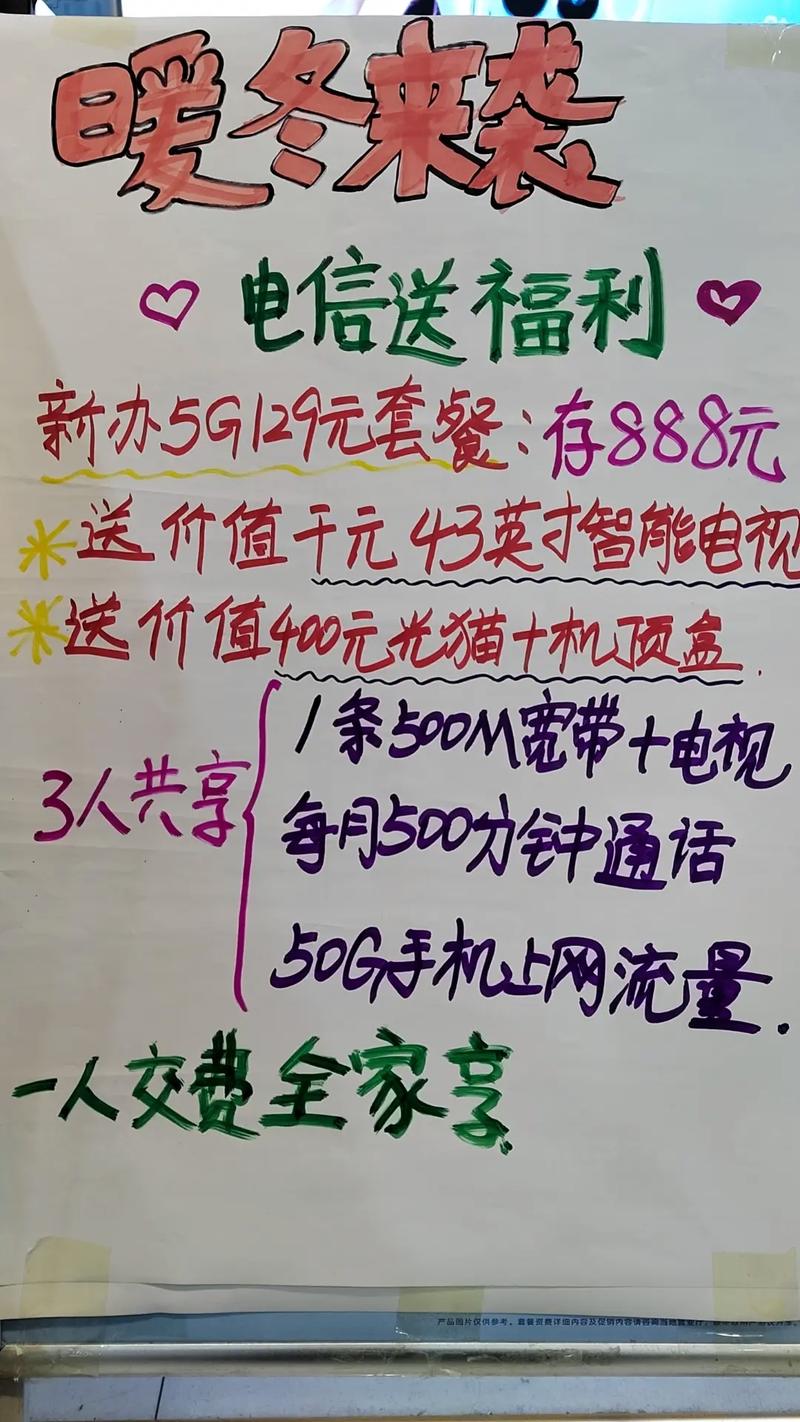 暖冬来袭
电信送福利
新办5G129元套餐:存888元
送价值千元43英寸智能电视
送价值400元光猫+机顶盒.
3人共享
1条500M宽带+电视
每月500分钟通话
50G手机上网流量.
一人交费全家享
产品图片仅供参考。套餐资费详细内容及促销内容请咨询当地营业厅，